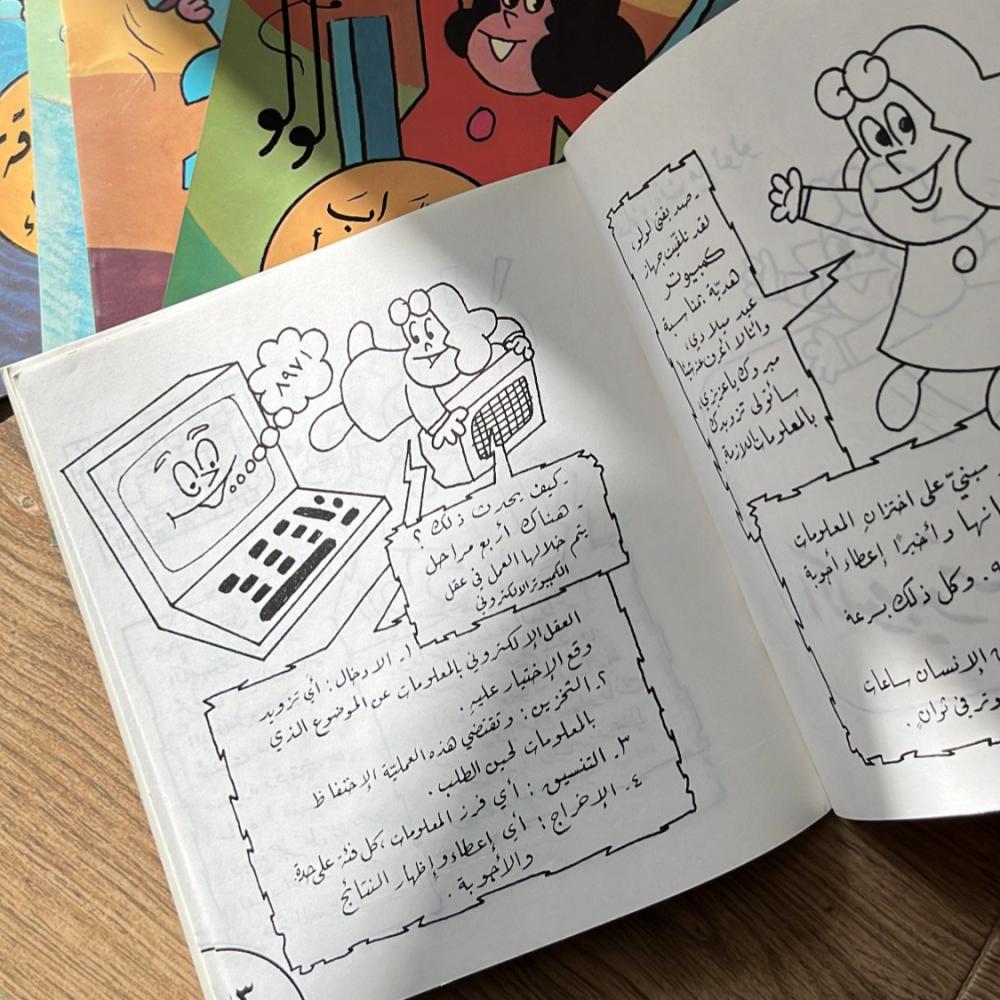 لولو
- صديقتي لولو،
لقد تلقيت جهاز
كمبيوتر
هديّة بمناسبة
عيد ميلادي،
وأنا لا أعرف عنه شيئا
مبروك يا عزيزي،
سأتولى تزويدك
بالمعلومات اللازمة
مبنيّ على اختزان المعلومات
وأخيرًا إعطاء أجوبة
وكل ذلك بسرعة
الإنسان ساعات
في ثوانٍ.
١٩٧٨
- كيف يحدث ذلك؟
- هناك أربع مراحل
يتم خلالها العمل في عقل
الكمبيوتر الالكتروني
١. الادخال: أي تزويد
العقل الإلكتروني بالمعلومات عن الموضوع الذي
وقع الإختيار عليه.
٢. التخزين: وتقتضي هذه العمليّة الإحتفاظ
بالمعلومات لحين الطلب.
٣. التنسيق: أي فرز المعلومات، كل فئة على حدة.
٤. الإخراج: أي إعطاء وإظهار النتائج
والأجوبة.
٣